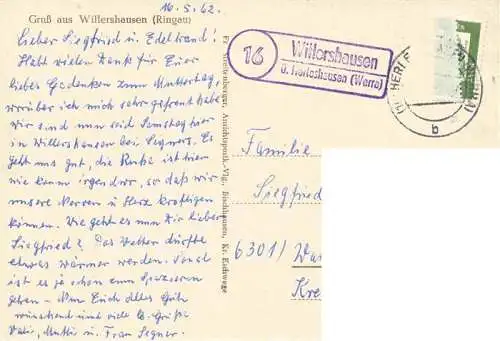 16.5.62
Gruß aus Willershausen (Ringau)
Lieber Siegfried u. Edeltraud!
Habt vielen Dank für Euer
liebes Gedenken zum Muttertag,
worüber ich mich sehr gefreut habe
Wir sind nun seid Samstag hier
in Willershausen bei Segners. Es
geht uns gut, die Ruhe ist hier
wie kaum irgendwo, so daß wir
unsere Nerven u. Herz kräftigen
können. Wie geht es nun Dir lieber
Siegfried? Das Wetter dürfte
etwas wärmer werden. Sonst
ist es ja schon zum Spazieren
gehen – Nun Euch alles Gute
wünschend und viele h. Grüße
Vati, Mutti u. Frau Segner.
Bischhausen, Kr. Eschwege
16
Willershausen
ü. Herleshausen (Werra)
b
Familie
Siegfried
6301/
Kre